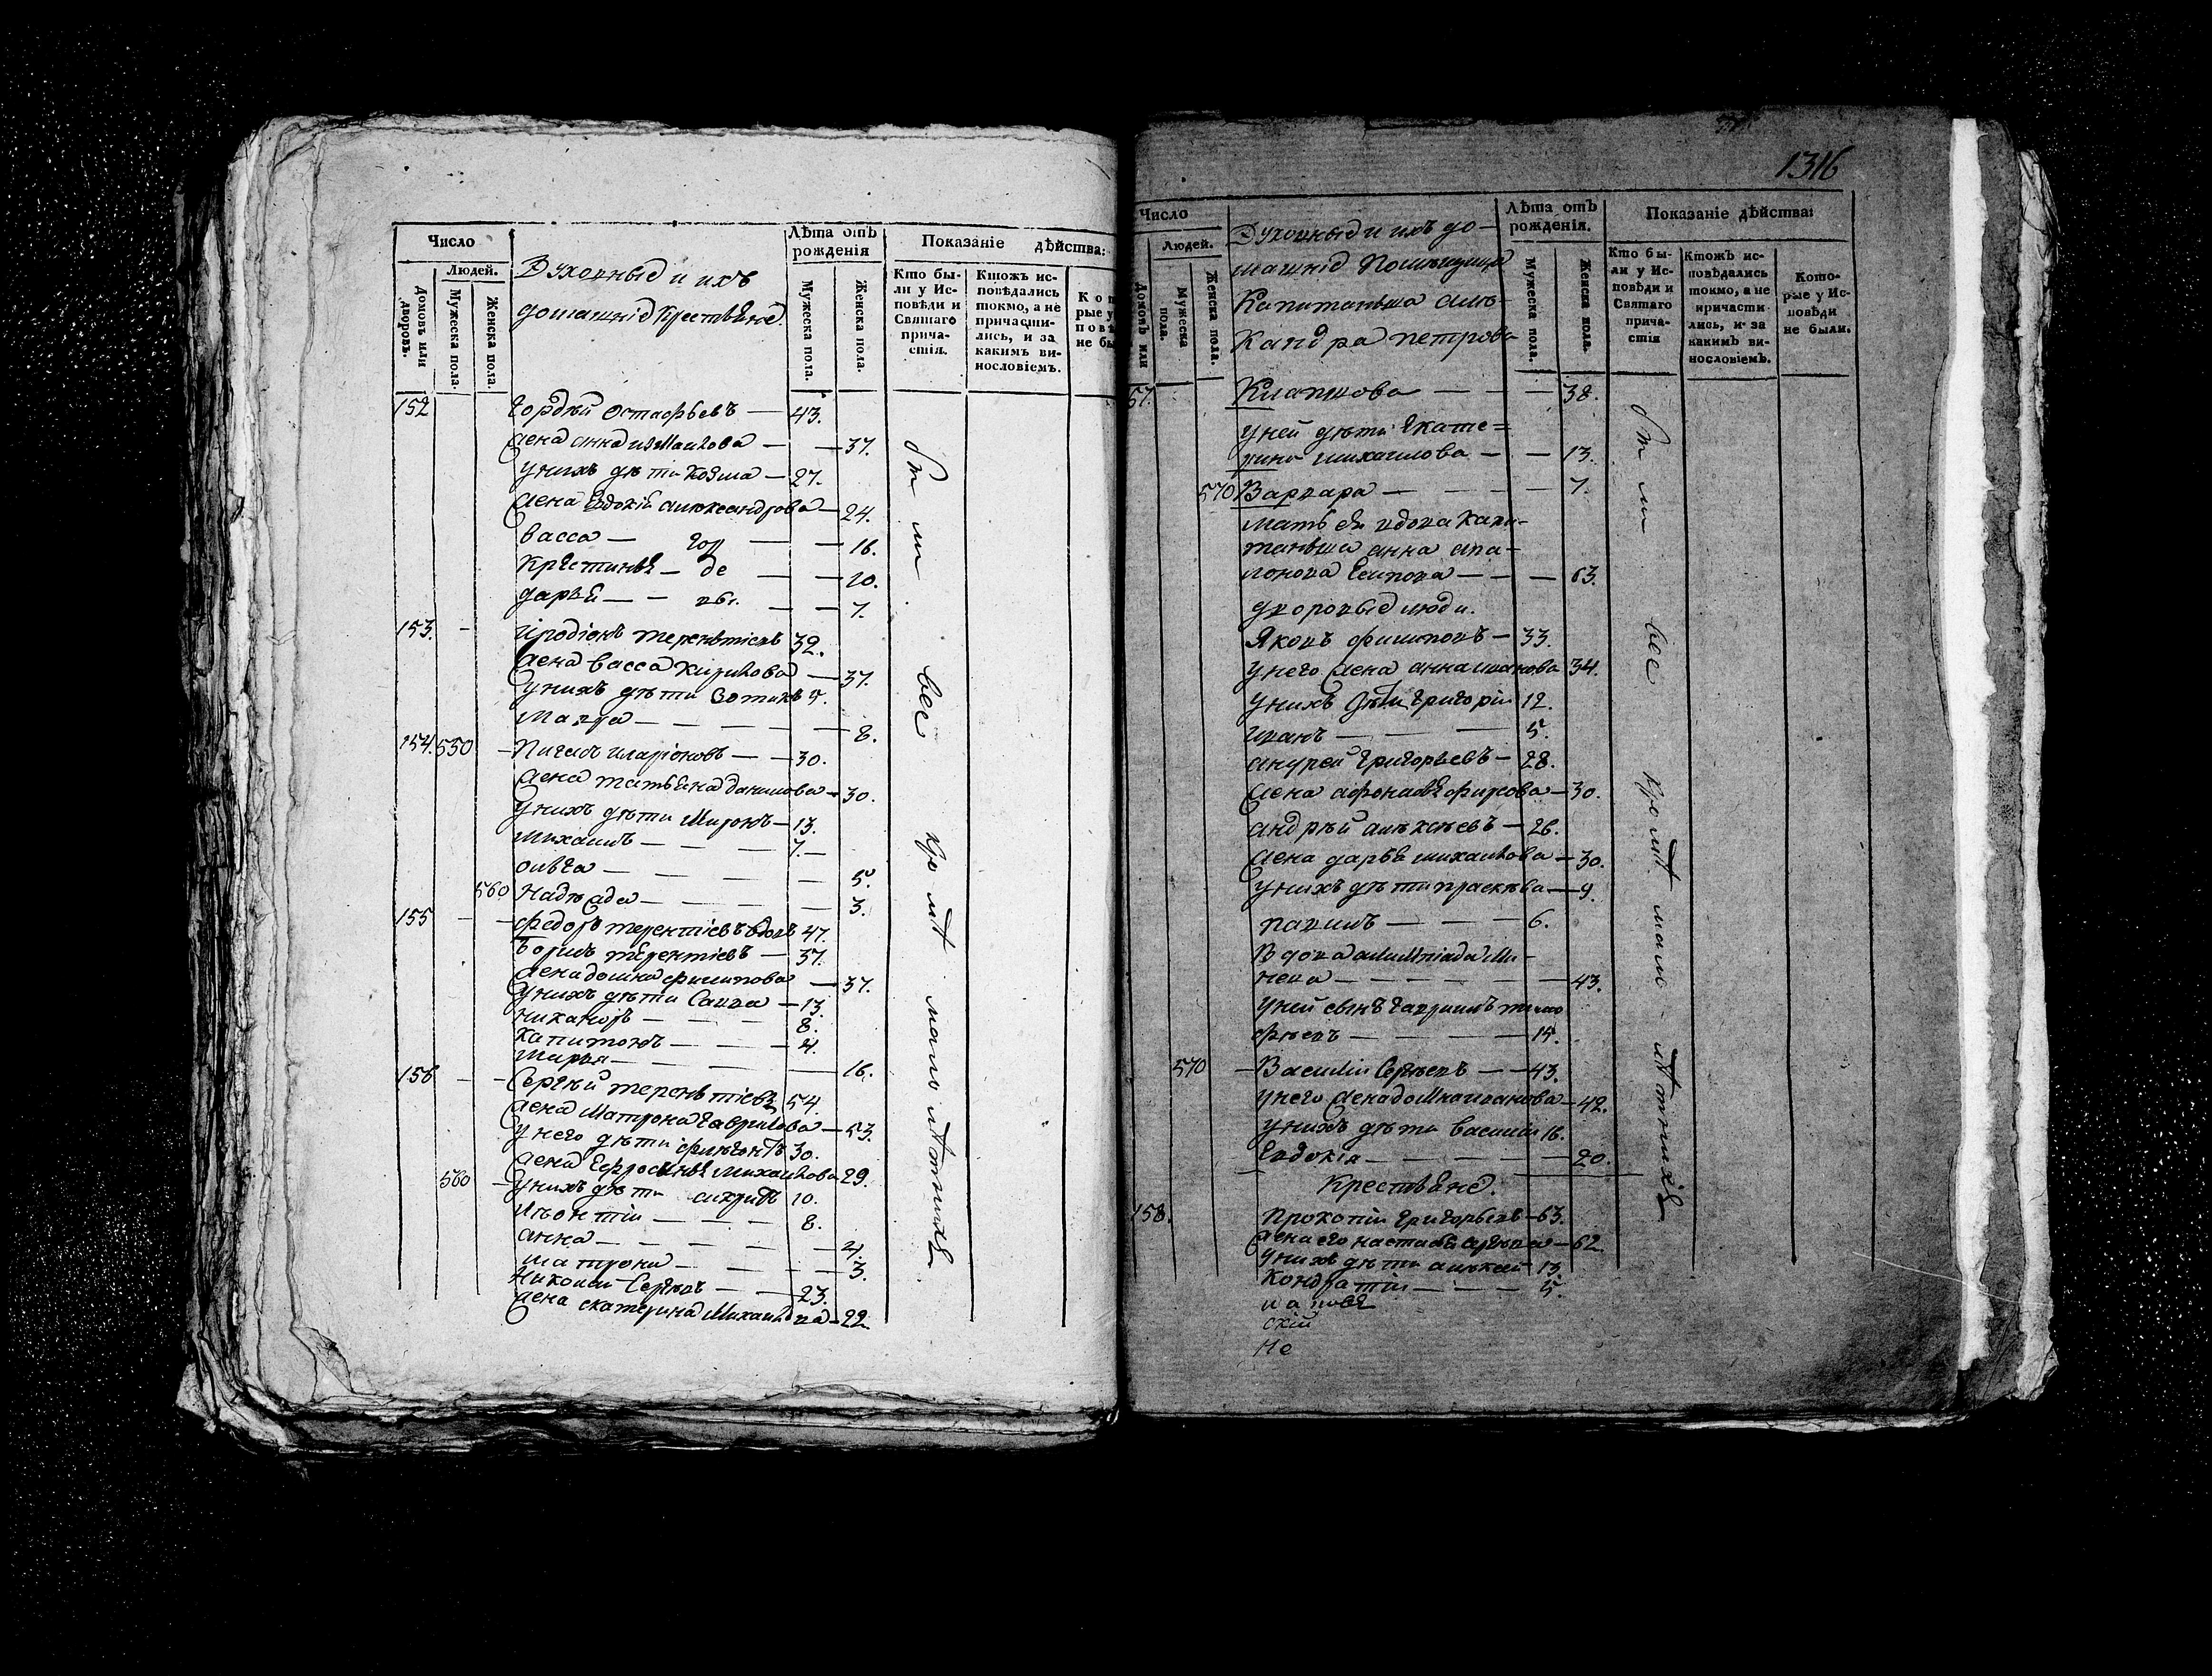 Число
Людей.
Домовъ или дворовъ.
Мужеска пола.
Женска пола.
Духовныѐ и ихъ
домашніѐ крестьянѐ.
Лѣта отъ
рожденія
Мужеска пола.
Женска пола.
Показаніе дѣйства:
Кто бы-
ли у Ис-
повѣди и
Святаго
прича-
стія.
Ктожъ ис-
повѣдались
токмо, а не
причасти-
лись, и за
какимъ ви-
нословіемъ.
152 Гордѣй остафьевъ — 43.
жена анна — 37.
унихъ дѣти козма — 27.
жена Евдокія александрова — 24.
васса — гор — — 16.
кристинья — де — — 10.
дарья — — вы. — — 7.
153. — Иродіонъ терентіевъ 32.
жена васса кирилова — 37.
унихъ дѣти Зотикъ 9.
Марфа — — — — 8.
154. 550 — иларіоновъ — — 30.
жена татьяна данилова — 30.
унихъ дѣти Миронъ — 13.
михаилъ — — — 7. —
ольга — — — — 5.
560 надежда — — — — 3.
155 — — федоръ терентіевъ вдовъ 47.
борисъ терентіевъ — 37.
жена домна филипова — 37.
унихъ дѣти Савва — 13.
никаноръ — — — 8.
капитонъ — — — 4.
марья — — — — 16.
156 — — Сергѣй терентіевъ 54.
жена Матрона гаврилова — 53.
у него дѣти 30.
жена Ефросинья михаилова 29.
560 — унихъ дѣти 10.
леонтіи — — — 8.
анна — — — — 4.
матрона — — — — 3.
николаи Сергѣевъ — — 23.
жена екатерина Михаилова — 22.
были все кромѣ мало лѣтнихъ
1316
Число
Людей.
Домовъ или
Мужеска пола.
Женска пола.
Духовныѐ и ихъ до-
машніѐ Помѣщица
Капитанша але-
Кандра петрова
Лѣта отъ
рожденія.
Мужеска пола.
Женска пола.
Показаніе дѣйства:
Кто бы-
ли у Ис-
повѣди и
Святаго
прича-
стія
Ктожъ ис-
повѣдались
токмо, а не
причасти
лись, и за
какимъ ви-
нословіемъ.
Кото-
рые у Ис-
повѣди
не были.
57. — — — 38.
уней дѣти Екате=
рина михаилова — — 13.
570 Варвара — — — — 7.
мать ея вдова капи-
танша анна апа-
лонова Есипова — — — 63.
дворовыѐ люди.
Яковъ филиповъ — 33.
унего жена анна иванова 34.
унихъ дѣти григоріи 12.
иванъ — — — 5.
андрей григорьевъ — 28.
жена афонасья фирсова — 30.
андрѣй алексѣевъ — 26.
жена дарья михаилова — 30.
унихъ дѣти прасковья — 9.
павилъ — — — 6.
Вдова алимпіада Ми-
неева — — — — — 43.
уней сынъ гаврилъ тимо
фѣевъ — — — 15.
570 — Василіи Сергѣевъ — — 43.
унего жена домна иванова — 42.
унихъ дѣти василіи 16.
Евдокія — — — — — 20.
Крестьянѐ.
158. прокопіи григорьевъ — 63.
жена его настасья — 62
унихъ дѣти алексѣй — 13.
Кондратіи — — — 5.
скіи
не
были все кромѣ мало-лѣтнихъ